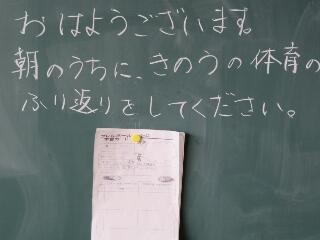 おはようございます。
朝のうちに、きのうの体育の
ふり返りをしてください。